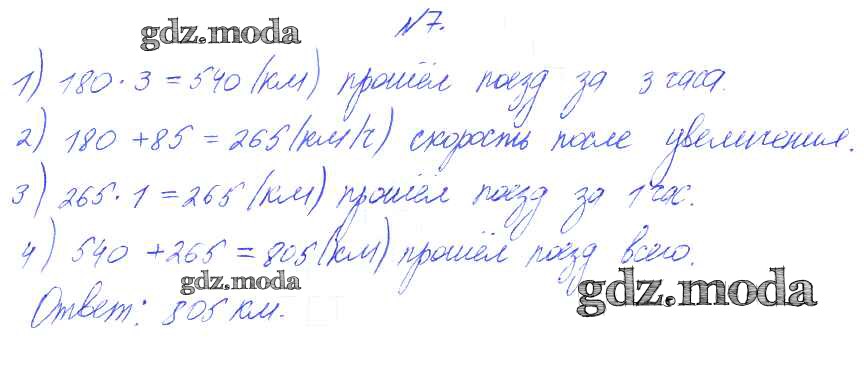 №7.
gdz.moda
1) 180 · 3 = 540 (км) прошёл поезд за 3 часа.
2) 180 + 85 = 265 (км/ч) скорость после увеличения.
3) 265 · 1 = 265 (км) прошёл поезд за 1 час.
4) 540 + 265 = 805 (км) прошёл поезд всего.
gdz.moda
gdz.moda
Ответ: 805 км.